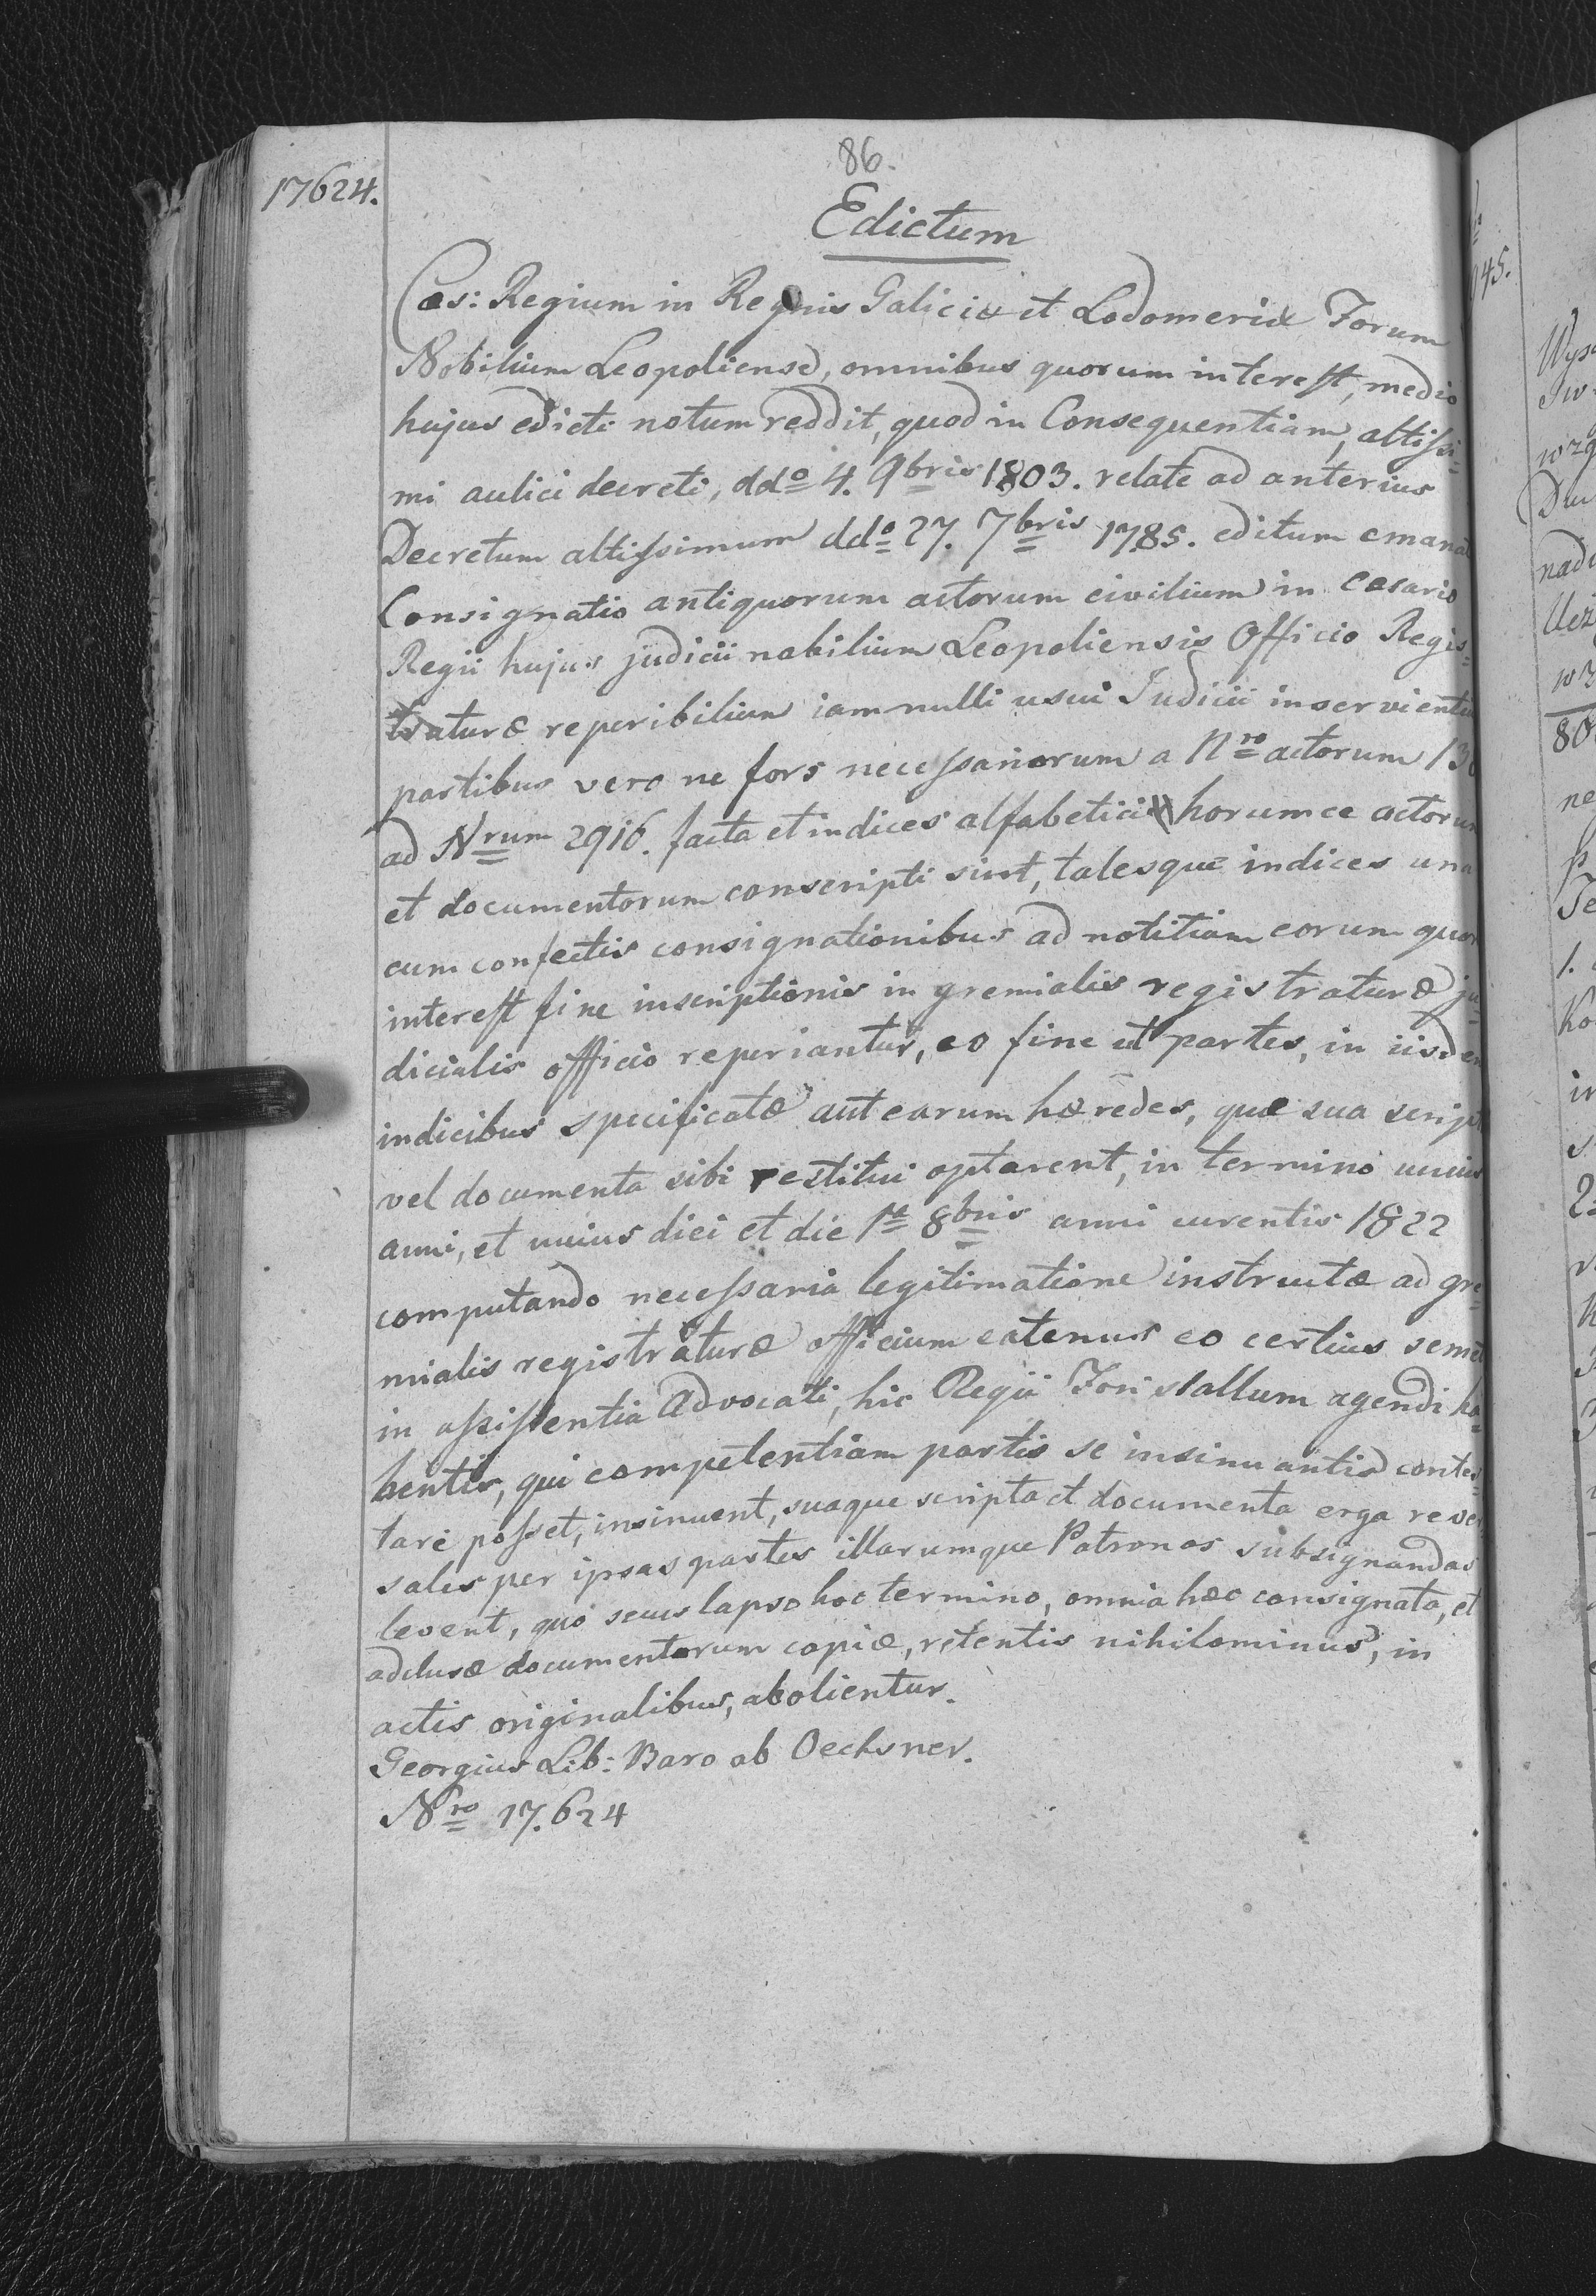 86.
17624.
Edictum
Cæs: Regium in Regnis Galiciæ et Lodomeriæ Forum
Nobilium Leopoliense, omnibus quorum interest, medio
hujus edicti notum reddit, quod in Consequentiam, altissi=
mi aulici decreti, ddo 4. 9bris 1803. relate ad anterius
Decretum altissimum ddo 27. 7bris 1785. editum emanat
Consignatio antiquorum actorum civilium in Cesario
Regii hujus judicii nobilium Leopoliensis Officio Regis=
traturæ reperibilium iam nulli usui Judicii inservientiu
partibus vero ne fors necessariorum a Nro actorum 130
ad Nrum 2916. facta et indices alfabetici horumce actorum
et documentorum conscripti sint, talesque indices una
cum confectis consignationibus ad notitiam eorum quor
interest fine inscriptionis in gremialis registraturæ ju=
dicialis officio reperiantur, eo fine ut partes, in iisdem
indicibus specificatæ aut earum hæredes, quæ sua script
vel documenta sibi restitui optarent, in termino unius
anni, et unius diei et die 1a 8bris anni curentis 1822
computando necessaria legitimatione instructæ ad gre=
mialis registraturæ officium eatenus eo certius semet
in assistentia Advocati, hic Regii Fori stallum agendi ha=
bentis, qui competentiam partis se insinuantis contes=
tare posset, insinuent, suaque scripta et documenta erga rever
sales per ipsas partes illarumque Patronos subsignandas
levent, quo secus lapso hoc termino, omnia hæc consignata, et
adclusæ documentorum copiæ, retentis nihilominus, in
actis originalibus, abolientur.
Georgius Lib: Baro ab Oechsner.
Nro 17.624
45.
Wys
Iw
wzg
Du
nad
Uez
wz
80
ne
Te
1.
Ko
in
s
2